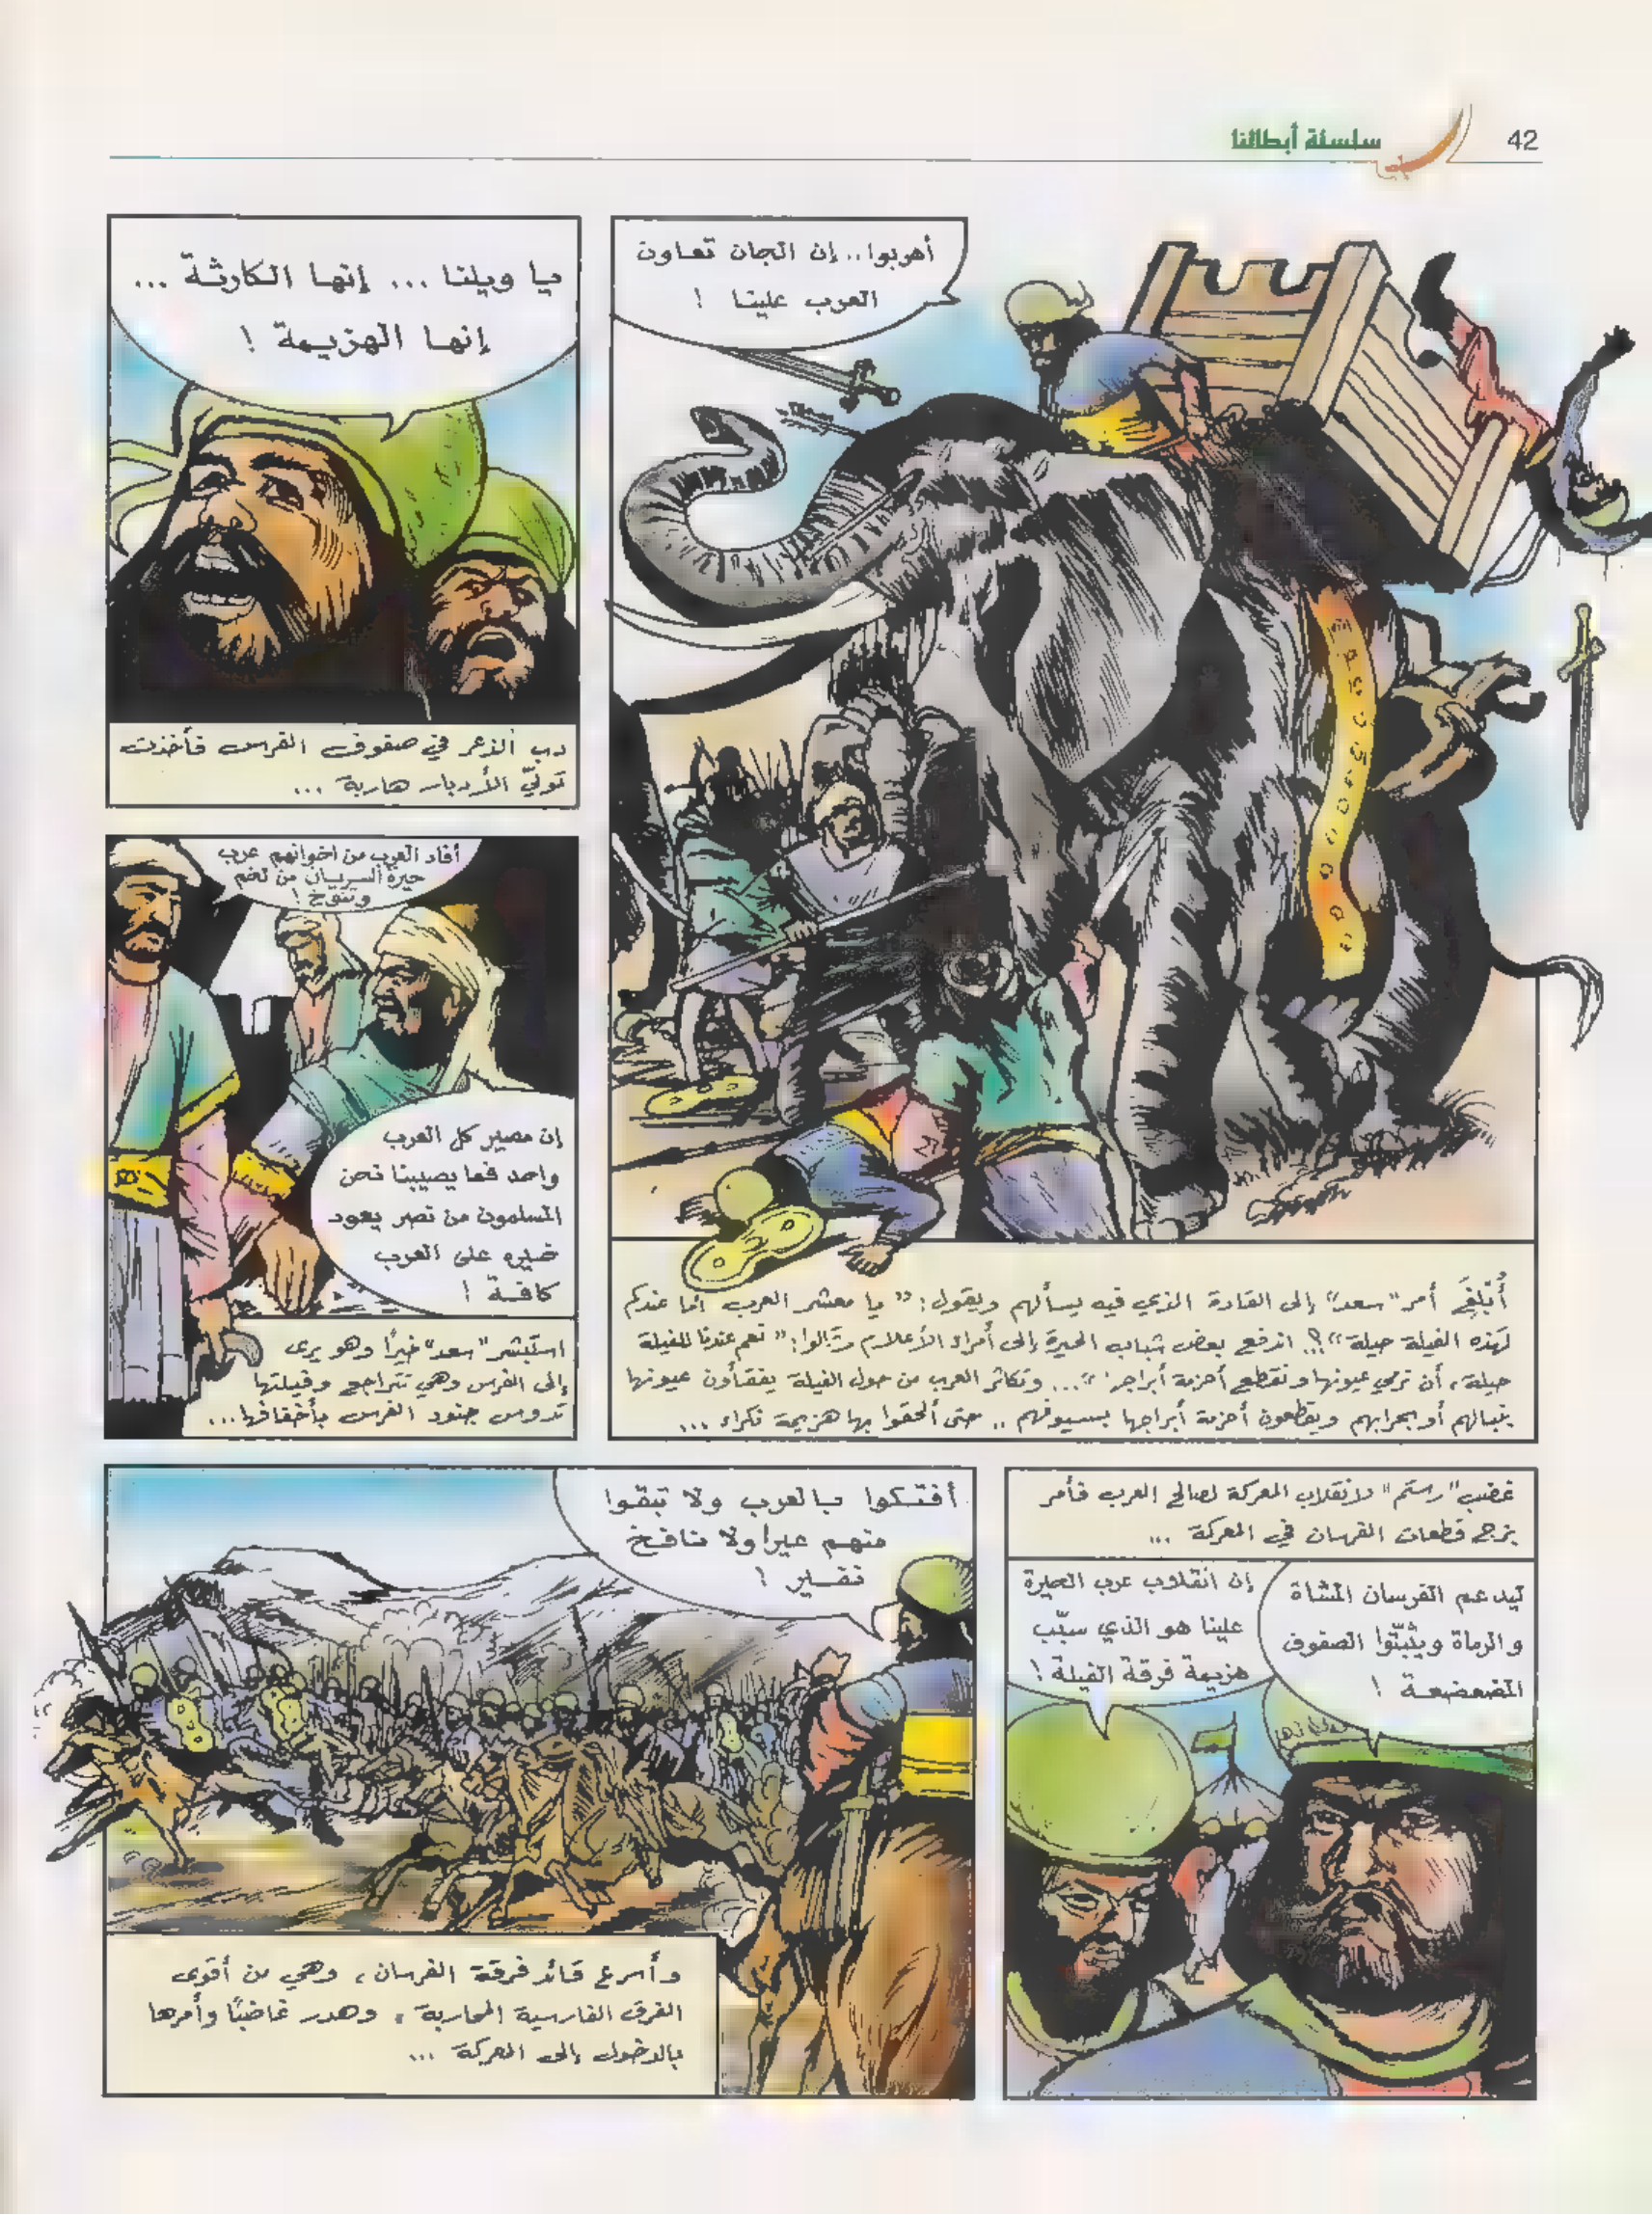 42
سلسلة أبطالنا
أهربوا.. إن الجان تعاون
العرب علينا !
أُبلغَ أمر "سعد" إلى القادة الذي فيه يسألهم ويقول: " يا معشر العرب أما عندكم
لهذه الفيلة حيلة "؟.. اندفع بعض شباب الحيرة إلى أمراء الأعلام وقالوا: " نعم عندنا للفيلة
حيلة، أن نرمي عيونها ونقطع أحزمة أبراجها "... وتكاثر العرب من حول الفيلة يفقأون عيونها
بنبالهم أو بحرابهم ويقطعون أحزمة أبراجها بسيوفهم .. حتى ألحقوا بها هزيمة نكراء ...
يا ويلنا ... إنها الكارثة ...
إنها الهزيمة !
دب الذعر في صفوف الفرس فأخذت
تولّي الأدبار هاربة ...
أفاد العرب من اخوانهم عرب
حيرة السريان من لخم
وتنوخ !
إن مصير كل العرب
واحد فما يصيبنا نحن
المسلمون من نصر يعود
خيره على العرب
كافة !
استبشر "سعد" خيرًا وهو يرى
إلى الفرس وهي تتراجع وفيلتها
تدوس جنود الفرس بأخفافها...
غضب "رستم" لانقلاب المعركة لصالح العرب فأمر
بزج قطعات الفرسان في المعركة ...
ليدعم الفرسان المشاة
والرماة ويثبّتوا الصفوف
المضعضعة !
إن انقلاب عرب الحيرة
علينا هو الذي سبّب
هزيمة فرقة الفيلة !
أفتكوا بالعرب ولا تبقوا
منهم عيرا ولا نافخ
نفير !
وأسرع قائد فرقة الفرسان، وهي من أقوى
الفرق الفارسية المحاربة، وهدر غاضبًا وأمرها
بالدخول إلى المعركة ...